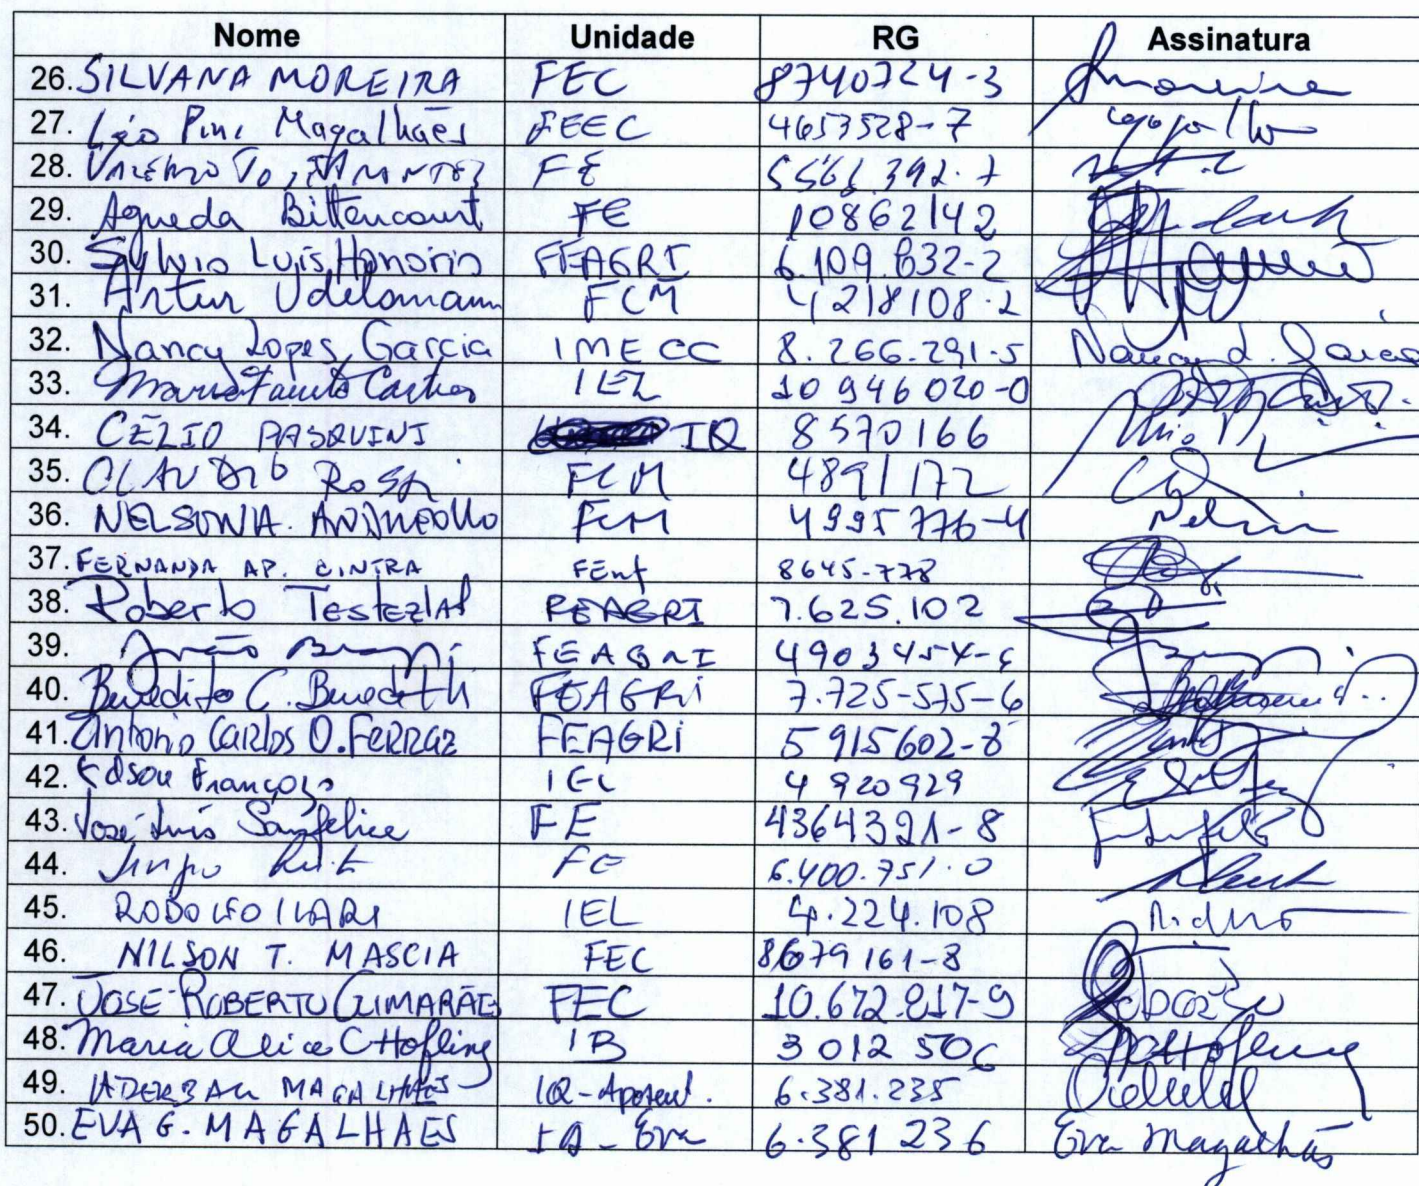 Nome Unidade RG Assinatura
26. SILVANA MOREIRA FEC 8740724-3
27. Léo Pini Magalhães FEEC 4653528-7
28. FE
29. Agueda Bittencourt FE 10862142
30. Sylvio Luis Honorio FEAGRI 6.109.832-2
31. Artur Udelsmann FCM 4218108-2
32. Nancy Lopes Garcia IMECC 8.266.291-5 Nancy L. Garcia
33. 10 946 020-0
34. CÉLIO PASQUINI IQ 8570166
35. CLAUDIO ROSSI FCM 4891172
36. NELSON A. ANDREOLLO FCM 4995776-4 Nelson
37. FERNANDA AP. CINTRA FEnf 8645-778
38. Roberto Testezlaf FEAGRI 7.625.102
39. João FEAGRI
40. Benedito C. Benedetti FEAGRI 7.725-575-6
41. Antonio Carlos O. FERRAZ FEAGRI 5 915602-8
42. Edson Françozo IEL 4 920929
43. José Luís Sanfelice FE 4364321-8
44. FE 6.400.751-0
45. RODOLFO ILARI IEL 4.224.108
46. NILSON T. MASCIA FEC 8679161-8
47. JOSÉ ROBERTO GUIMARÃES FEC 10.672.817-9
48. Maria Alice C Hofling IB 3 012 506
49. ADERBAL MAGALHÃES IQ-Aposent. 6.381.235
50. EVA G. MAGALHAES 6.381 236 Eva Magalhães